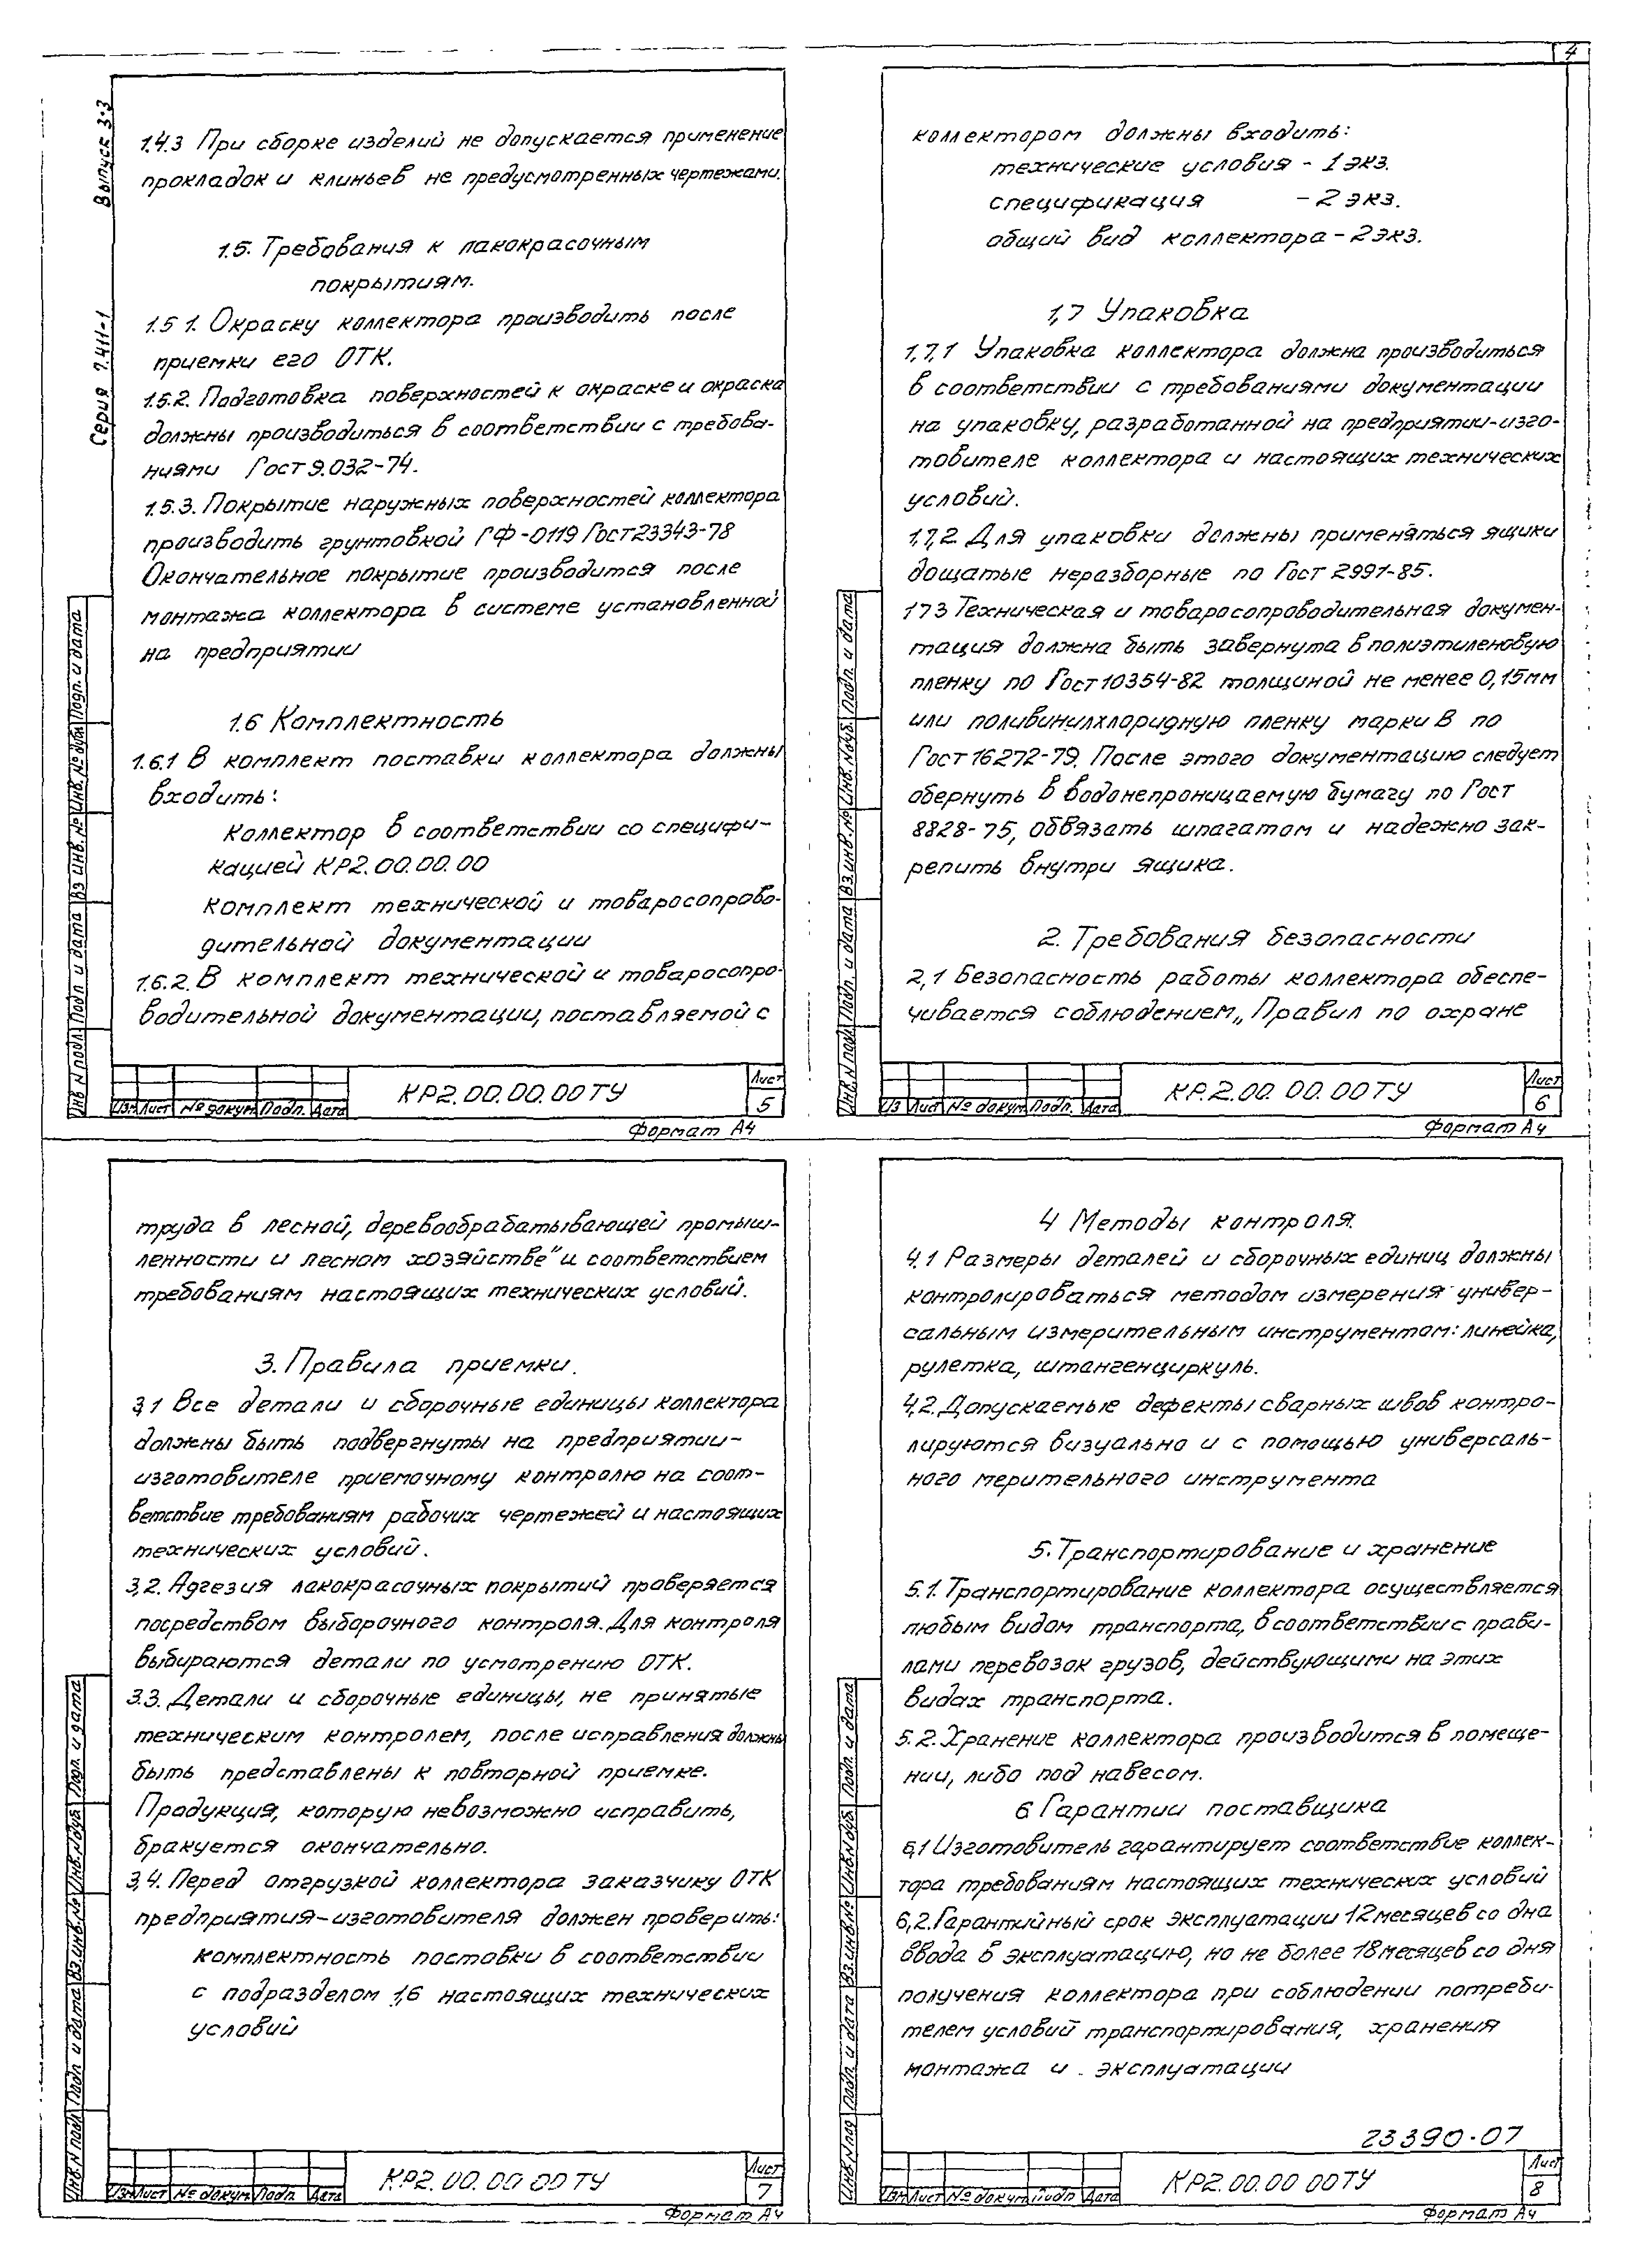 4
Выпуск 3-3
Серия 7.411-1
1.4.3 При сборке изделий не допускается применение
прокладок и клиньев не предусмотренных чертежами.
1.5. Требования к лакокрасочным
покрытиям.
1.5 1. Окраску коллектора производить после
приемки его ОТК.
1.5.2. Подготовка поверхностей к окраске и окраска
должны производиться в соответствии с требова-
ниями Гост 9.032-74.
1.5.3. Покрытие наружных поверхностей коллектора
производить грунтовкой ГФ-0119 Гост 23343-78
Окончательное покрытие производится после
монтажа коллектора в системе установленной
на предприятии
1.6 Комплектность
1.6.1 В комплект поставки коллектора должны
входить:
коллектор в соответствии со специфи-
кацией КР2.00.00.00
комплект технической и товаросопрово-
дительной документации
1.6.2. В комплект технической и товаросопро-
водительной документации, поставляемой с
Инв N подл Подп и дата Вз инв. № Инв. № дубл Подп. и дата
Изм Лист № докум Подп. Дата
КР2.00.00.00ТУ
Лист
5
Формат А4
коллектором должны входить:
технические условия - 1 экз.
спецификация - 2 экз.
общий вид коллектора - 2 экз.
1,7 Упаковка
1,7,1 Упаковка коллектора должна производиться
в соответствии с требованиями документации
на упаковку, разработанной на предприятии-изго-
товителе коллектора и настоящих технических
условий.
1.7,2 Для упаковки должны применяться ящики
дощатые неразборные по Гост 2991-85.
1 7 3 Техническая и товаросопроводительная докумен-
тация должна быть завернута в полиэтиленовую
пленку по Гост 10354-82 толщиной не менее 0,15мм
или поливинилхлоридную пленку марки В по
Гост 16272-79. После этого документацию следует
обернуть в водонепроницаемую бумагу по Гост
8828-75, обвязать шпагатом и надежно зак-
репить внутри ящика.
2. Требования безопасности
2,1 Безопасность работы коллектора обеспе-
чивается соблюдением „Правил по охране
Инв N подл Подп. и дата Вз.инв.№ Инв. №дуб. Подп. и дата
Из Лист № докум Подп. Дата
КР.2.00. 00.00ТУ
Лист
6
Формат А4
труда в лесной, деревообрабатывающей промыш-
ленности и лесном хозяйстве" и соответствием
требованиям настоящих технических условий.
3. Правила приемки.
3,1 Все детали и сборочные единицы коллектора
должны быть подвергнуты на предприятии-
изготовителе приемочному контролю на соот-
ветствие требованиям рабочих чертежей и настоящих
технических условий.
3,2. Адгезия лакокрасочных покрытий проверяется
посредством выборочного контроля. Для контроля
выбираются детали по усмотрению ОТК.
3.3. Детали и сборочные единицы, не принятые
техническим контролем, после исправления должны
быть представлены к повторной приемке.
Продукция, которую невозможно исправить,
бракуется окончательно.
3,4. Перед отгрузкой коллектора заказчику ОТК
предприятия-изготовителя должен проверить:
комплектность поставки в соответствии
с подразделом 1,6 настоящих технических
условий
Инв. N подл Подп и дата Вз.инв.№ Инв.№дуб. Подп. и дата
Изм Лист № докум Подп Дата
КР2.00.00 00 ТУ
Лист
7
Формат А4
4 Методы контроля.
4.1 Размеры деталей и сборочных единиц должны
контролироваться методом измерения универ-
сальным измерительным инструментом: линейка,
рулетка, штангенциркуль.
4,2. Допускаемые дефекты сварных швов контро-
лируются визуально и с помощью универсаль-
ного мерительного инструмента
5. Транспортирование и хранение
5.1. Транспортирование коллектора осуществляется
любым видом транспорта, в соответствии с прави-
лами перевозок грузов, действующими на этих
видах транспорта.
5.2. Хранение коллектора производится в помеще-
нии, либо под навесом.
6 Гарантии поставщика
6,1 Изготовитель гарантирует соответствие коллек-
тора требованиям настоящих технических условий
6,2. Гарантийный срок эксплуатации 12 месяцев со дна
ввода в эксплуатацию, но не более 18 месяцев со дня
получения коллектора при соблюдении потреби-
телем условий транспортирования, хранения
монтажа и эксплуатации
23390-07
Инв. N под Подп. и дата Вз.инв.№ Инв.№дуб. Подп. и дата
Изм Лист № докум Подп Дата
КР2.00.00 00ТУ
Лист
8
Формат А4